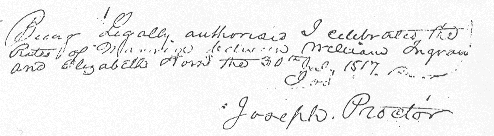 Being Legally authorised I celebrated the
Rites of Marriage between William Ingram
and Elizabeth the 30th 1817.
Joseph Proctor